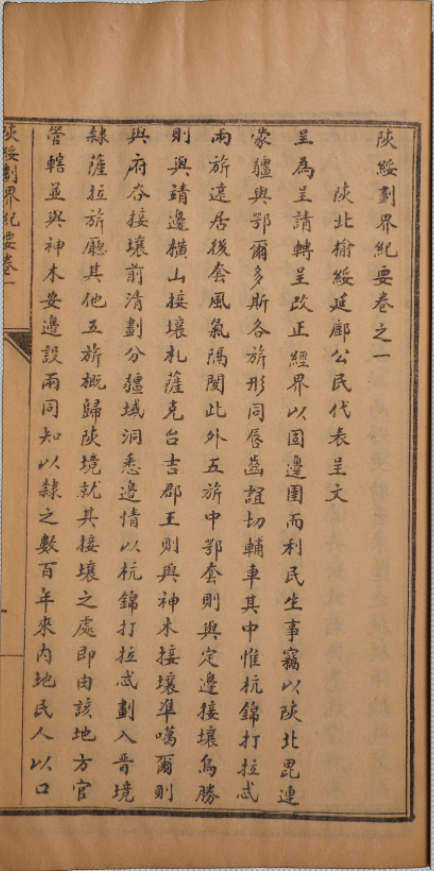 陝綏劃界紀要卷之一
陝北榆綏延鄜公民代表呈文
呈為呈請轉呈改正經界以固邊圉而利民生事竊以陝北毘連
蒙疆與鄂爾多斯各旂形同唇齒誼切輔車其中惟杭錦打拉忒
兩旂遠居後套風氣隔閡此外五旂中鄂套則與定邊接壤烏勝
則與靖邊橫山接壤札薩克台吉郡王則與神木接壤準噶爾則
與府谷接壤前清劃分疆域洞悉邊情以杭錦打拉忒劃入晋境
隸薩拉旂廳其他五旂概歸陝境就其接壤之處即由該地方官
管轄並與神木安邊設兩同知以隸之數百年來內地民人以口
陝綏劃界紀要卷一